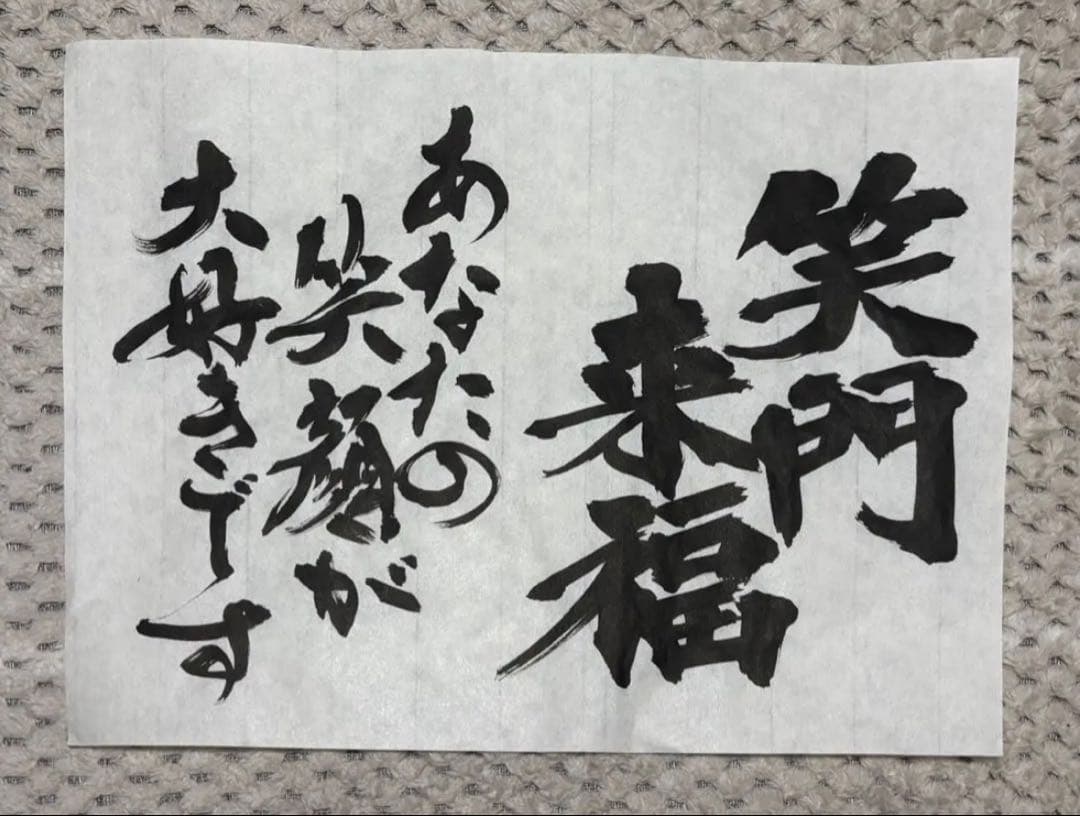 笑門
来福
あなたの
笑顔が
大好きです